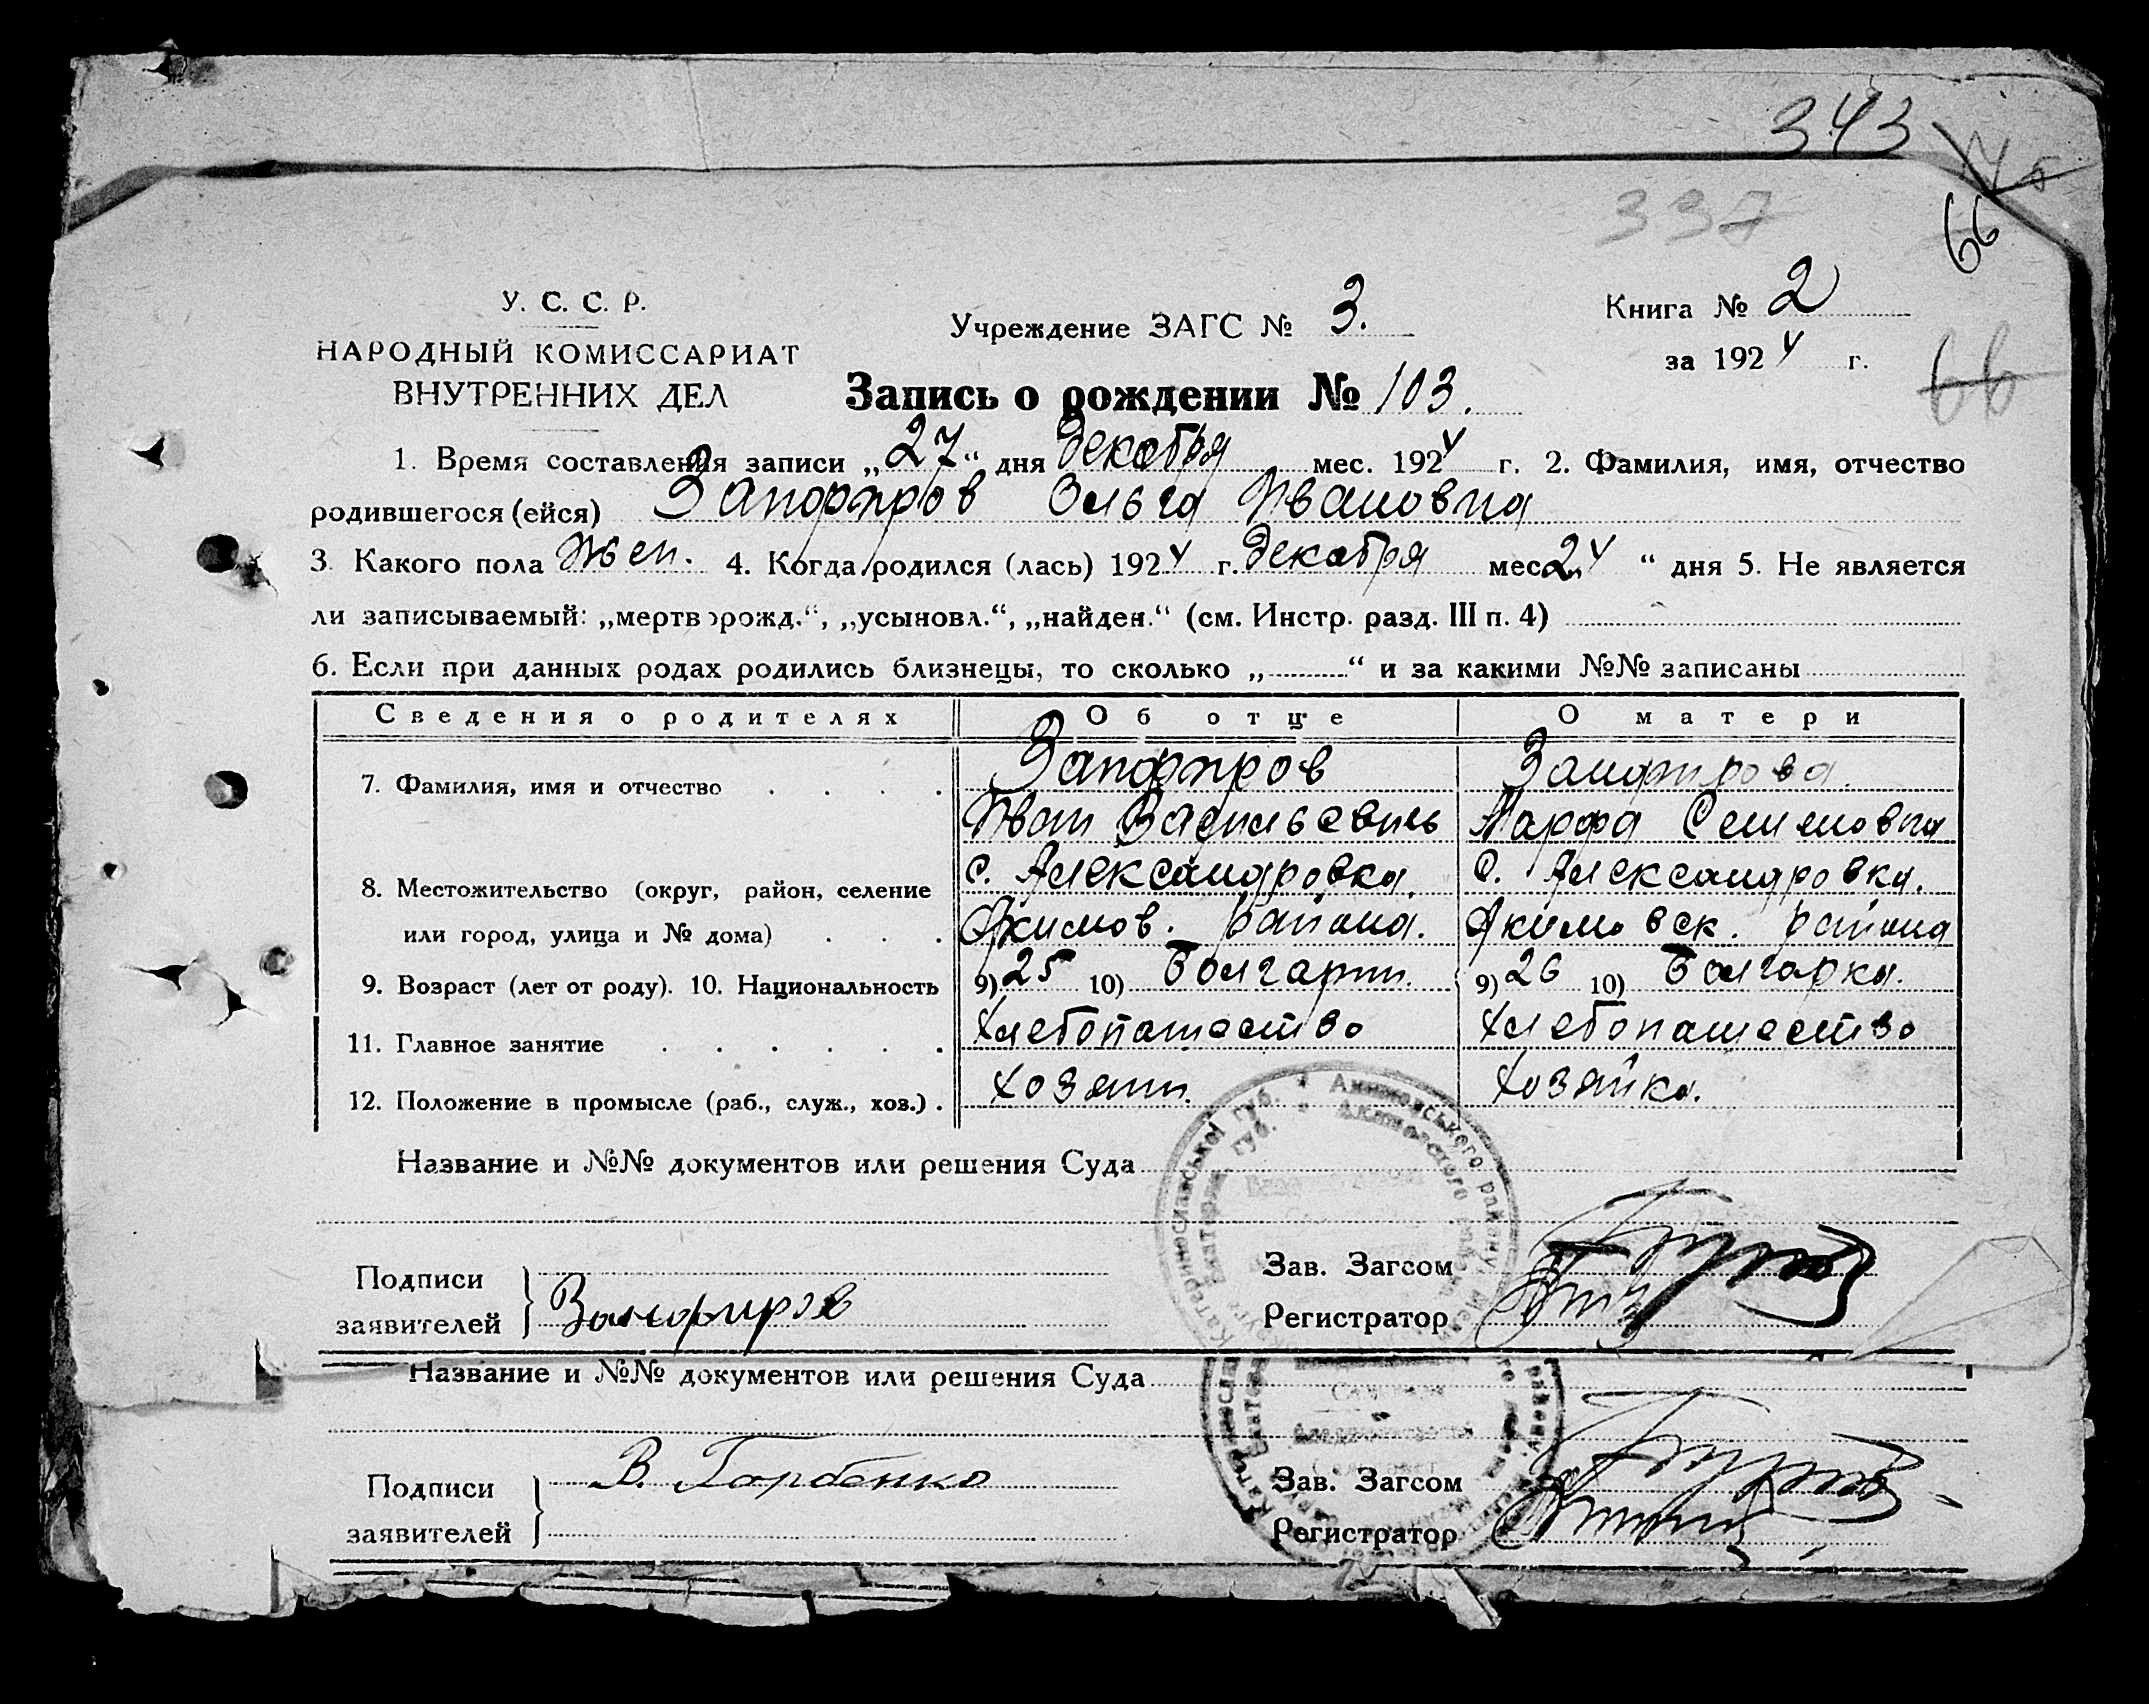 343
337
66
У. С. С. Р.
НАРОДНЫЙ КОМИССАРИАТ
ВНУТРЕННИХ ДЕЛ
Учреждение ЗАГС № 3.
Книга № 2
за 1924 г.
66
Запись о рождении № 103.
1. Время составления записи „27“ дня декабря мес. 1924 г. 2. Фамилия, имя, отчество
родившегося (ейся) Запфиров Ольга Ивановна
3. Какого пола жен. 4. Когда родился (лась) 1924 г. декабря мес. 24 “ дня 5. Не является
ли записываемый: „мертворожд.“, „усыновл.“, „найден.“ (см. Инстр. разд. III п. 4)
6. Если при данных родах родились близнецы, то сколько „ “ и за какими №№ записаны
Сведения о родителях Об отце О матери
7. Фамилия, имя и отчество Запфиров Занфирова
Иван Васильевич Марфа Семеновна
8. Местожительство (округ, район, селение с. Александровка. с. Александровка.
или город, улица и № дома) Акимов. района. Акимовск. района
9. Возраст (лет от роду). 10. Национальность 9) 25 10) Болгарин. 9) 26 10) Болгарка.
11. Главное занятие Хлебопашество Хлебопашество
12. Положение в промысле (раб., служ., хоз.) Хозяин. Хозяйка.
Название и №№ документов или решения Суда
Катеринославської губ. Акимовського району
Акимовского
Подписи
заявителей Занфиров
Зав. Загсом
Регистратор
Название и №№ документов или решения Суда
Подписи
заявителей В. Горбенко
Зав. Загсом
Регистратор